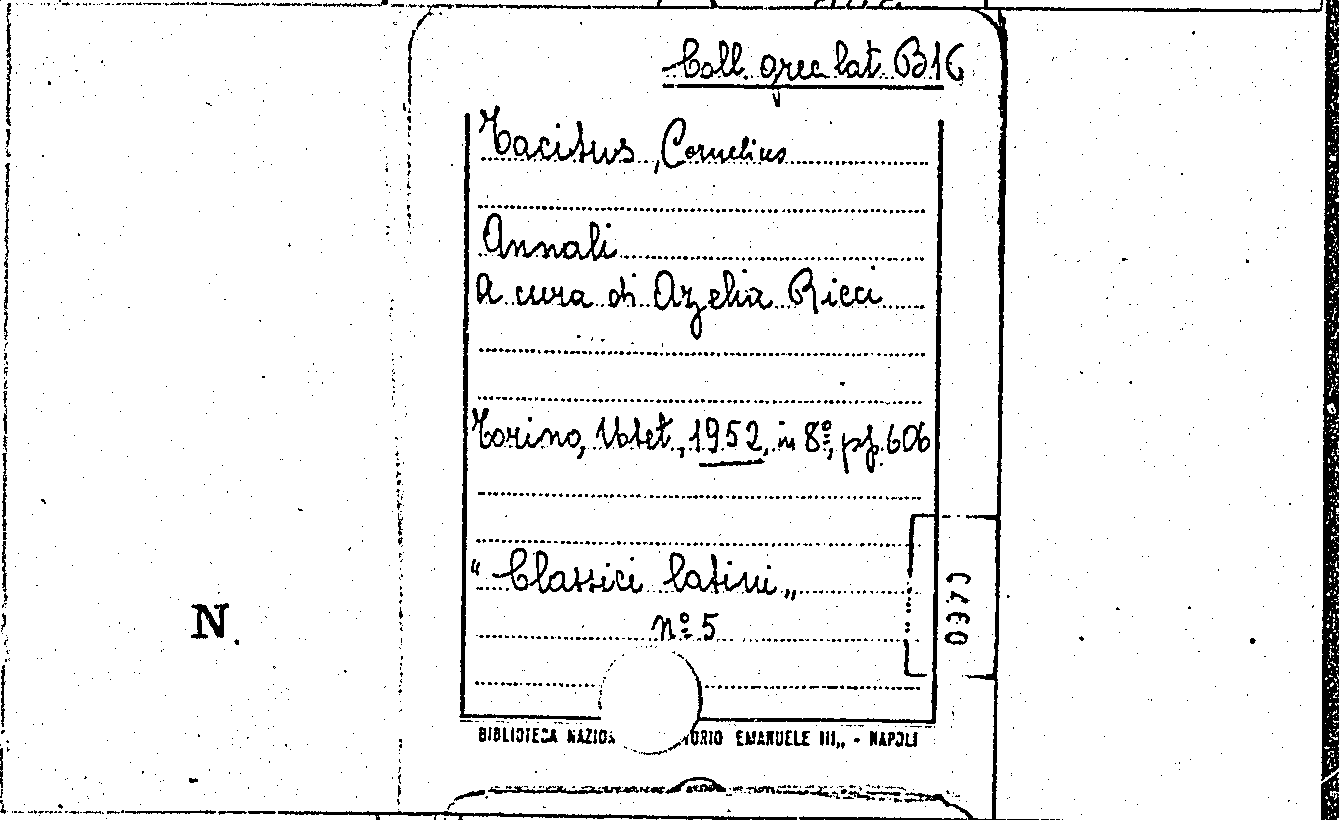 Coll. grec lat. B16
Tacitus, Cornelius
Annali
A cura di Azelia Ricci
Torino, Utet, 1952, in 8º, pp. 606
"Classici latini„
nº 5
N.
BIBLIOTECA NAZIO URIO EMANUELE III„ - NAPOLI